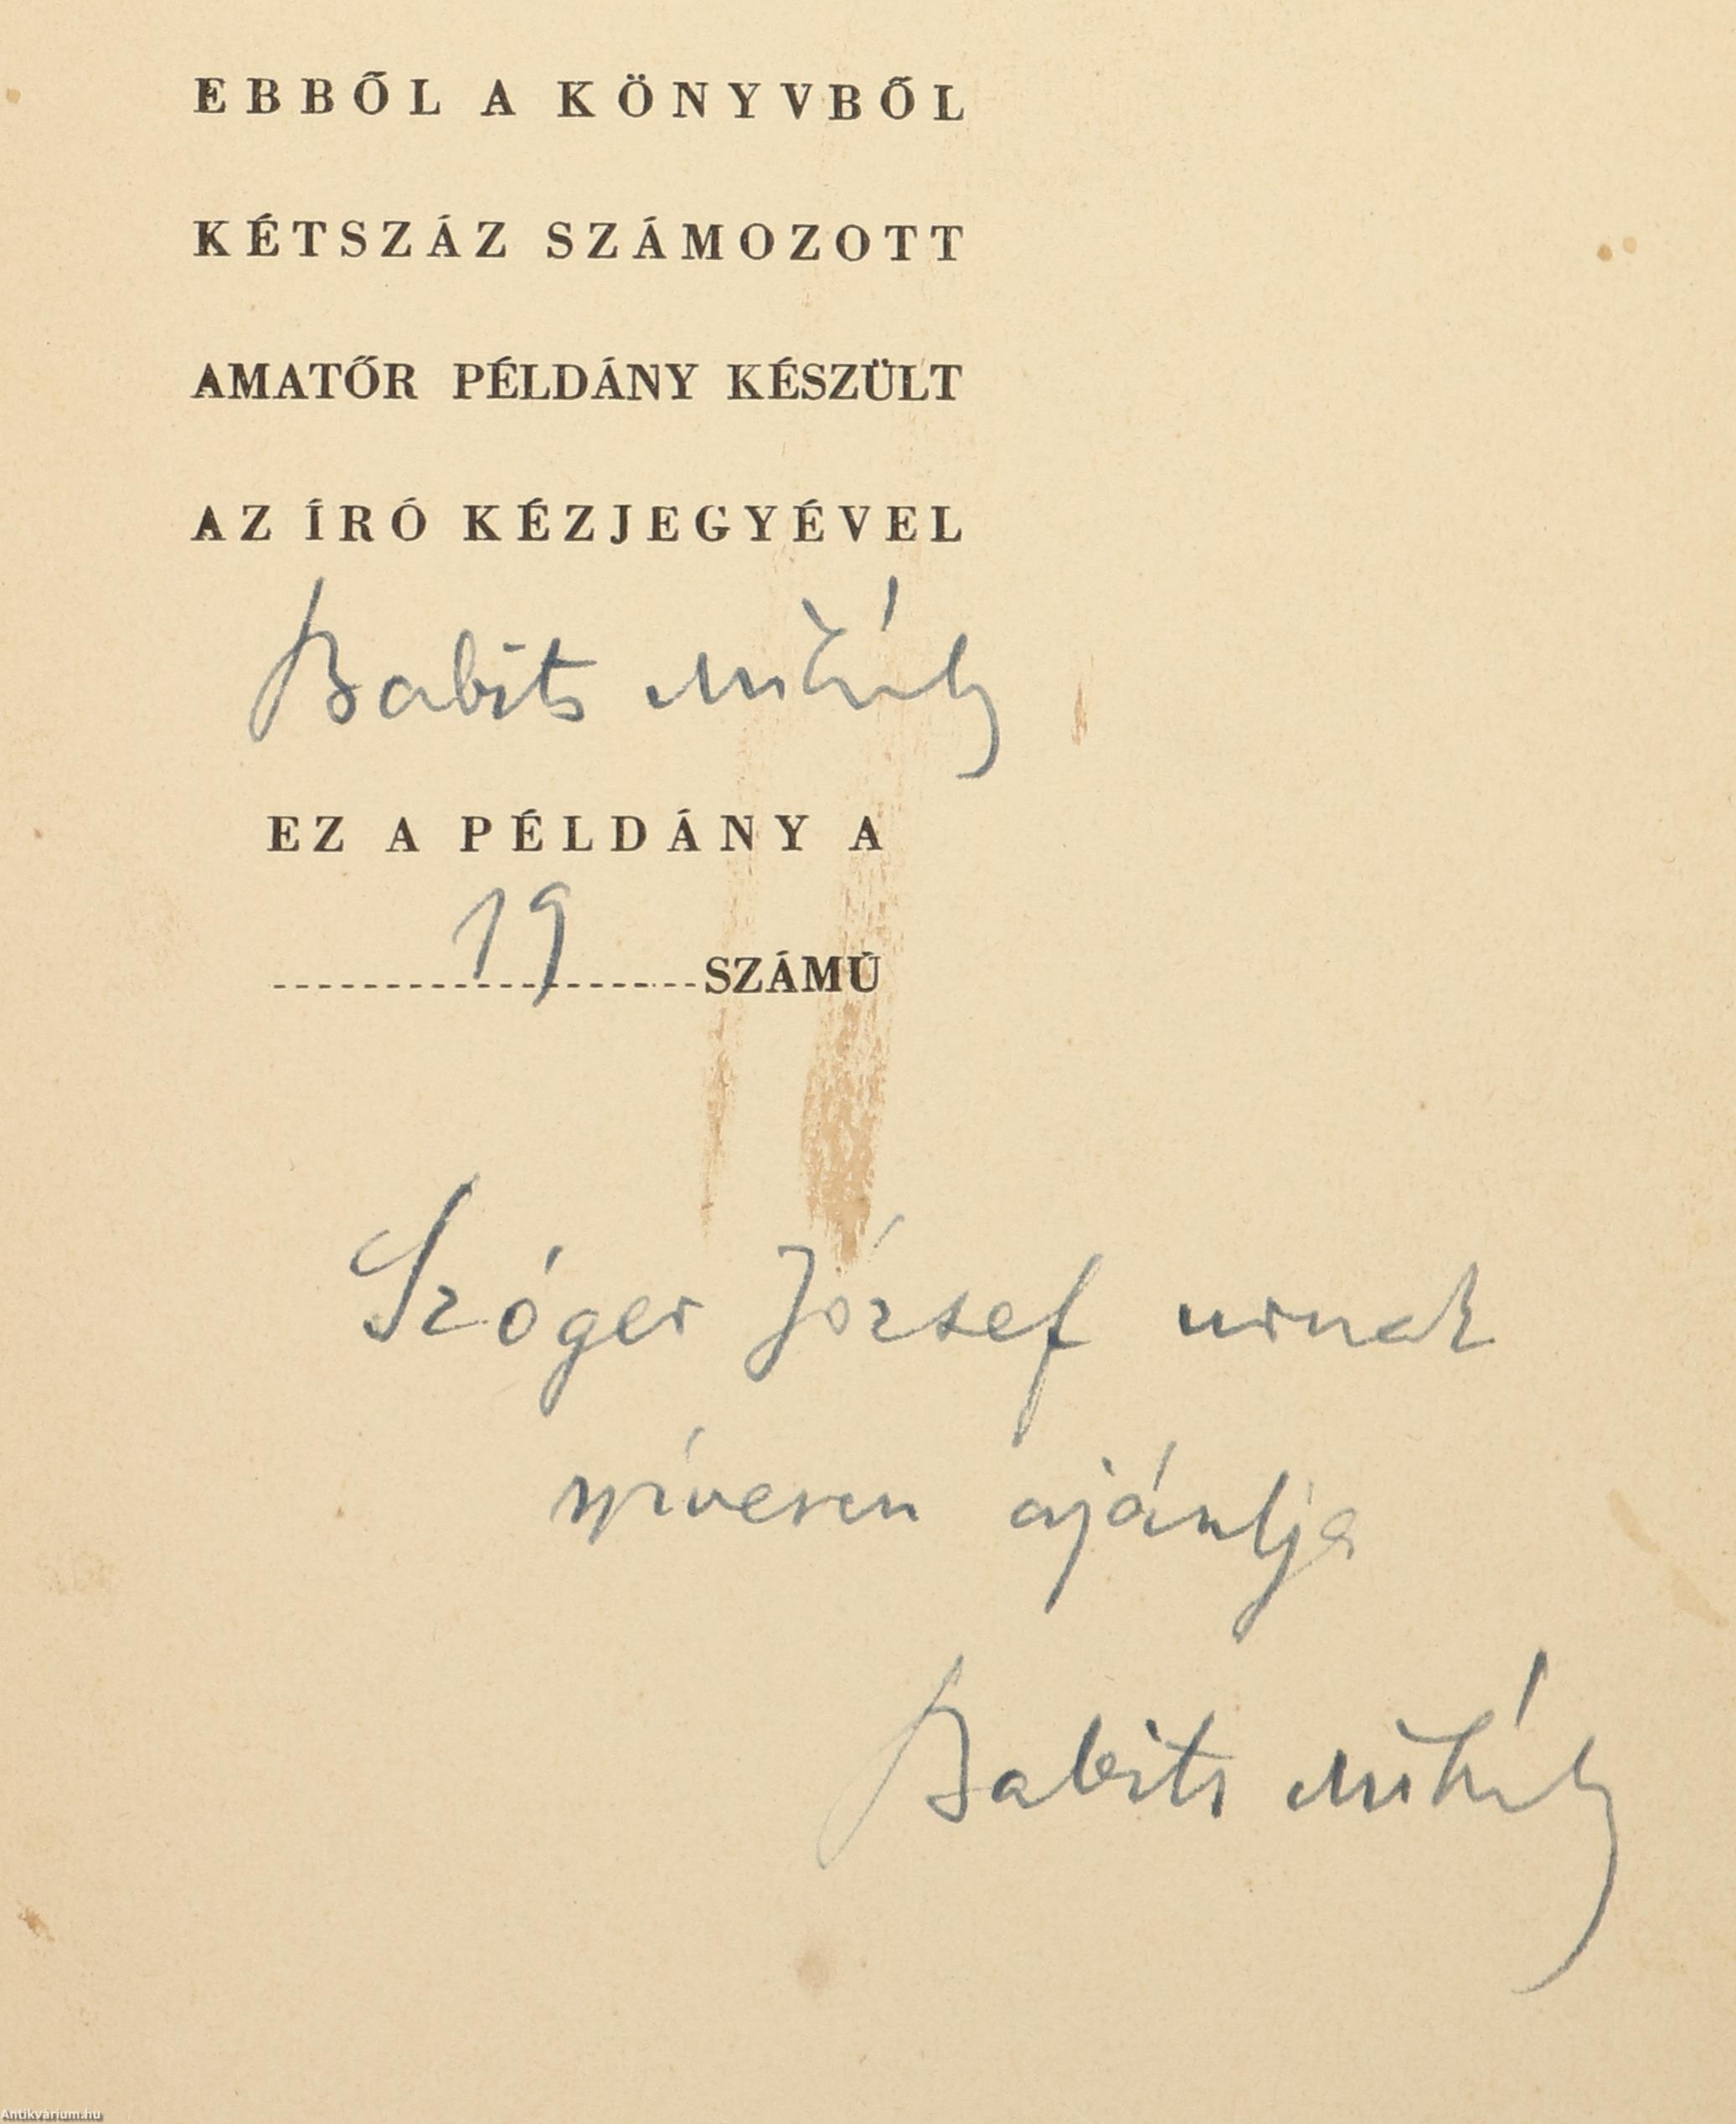 EBBŐL A KÖNYVBŐL
KÉTSZÁZ SZÁMOZOTT
AMATŐR PÉLDÁNY KÉSZÜLT
AZ ÍRÓ KÉZJEGYÉVEL
Babits Mihály
EZ A PÉLDÁNY A
19 SZÁMÚ
Szóger József urnak
szívesen ajánlja
Babits Mihály
Antikvárium.hu